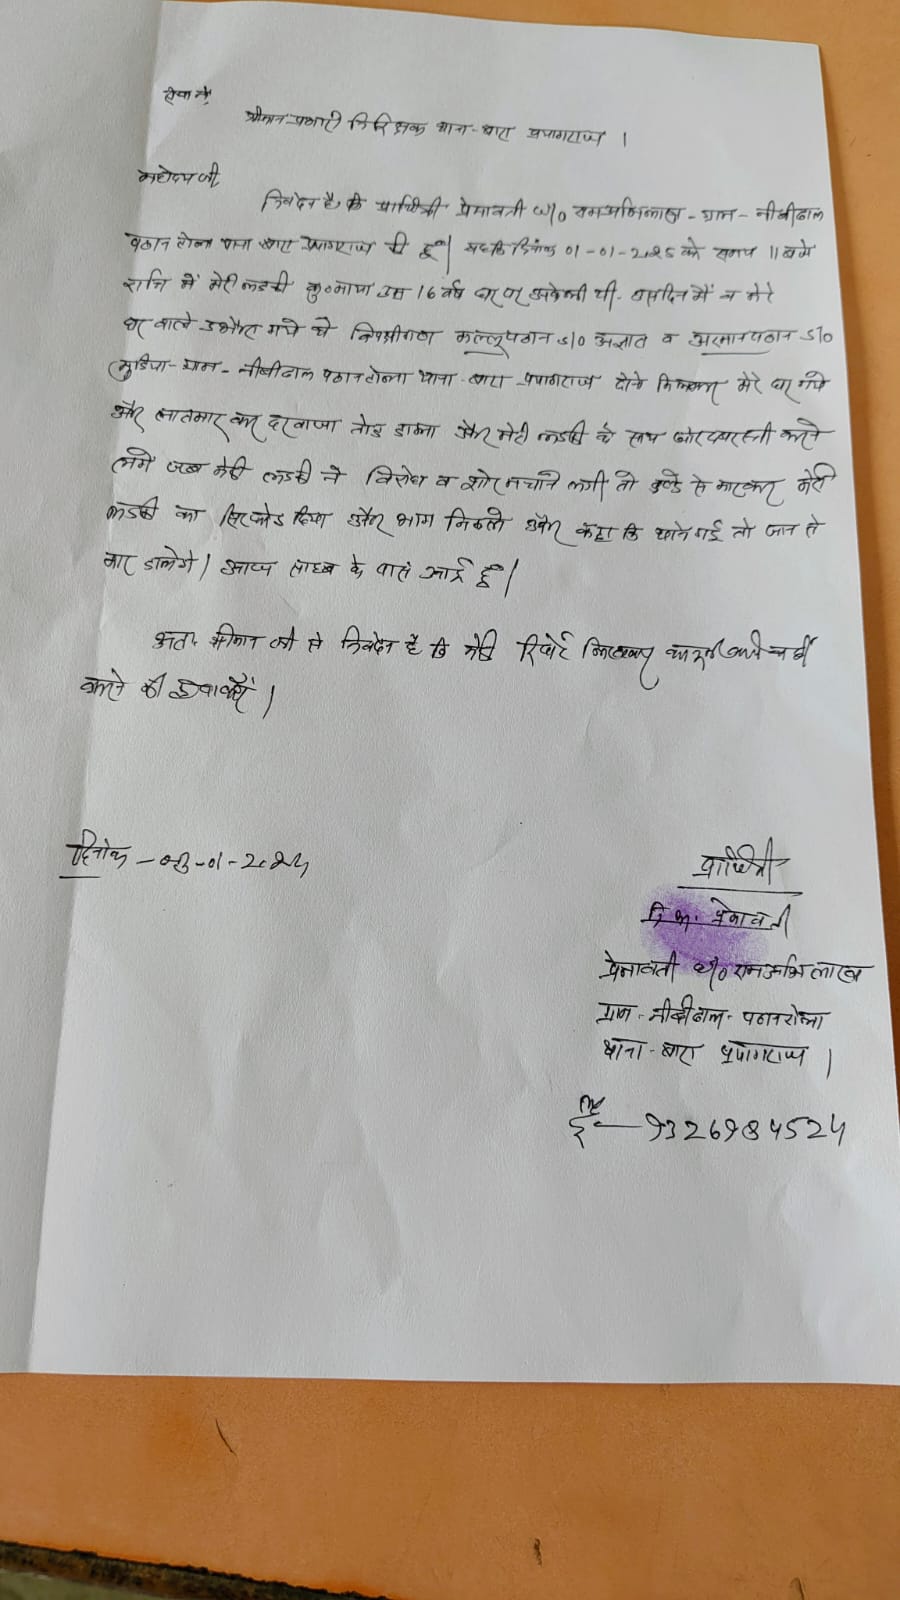 सेवा में,
श्रीमान प्रभारी निरीक्षक थाना-बारा प्रयागराज ।
महोदय जी,
निवेदन है कि प्रार्थिनी प्रेमावती w/o रामअभिलाख - ग्राम - नीबीढाल
पठान टोला थाना बारा प्रयागराज की हूँ। दिनांक 01-01-2025 को समय 11 बजे
रात्रि में मेरी लडकी कु० माया उम्र 16 वर्ष घर पर अकेली थी. में व मेरे
घर वाले गये थे विपक्षीगण कल्लू पठान s/o अज्ञात व अरमान पठान s/o
मुडिया-ग्राम-नीबीढाल पठान टोला थाना-बारा प्रयागराज दोनो मिलकर मेरे घर गये
और लातमार कर दरवाजा तोड डाला और मेरी लडकी के साथ जोरजबरस्ती करने
लगे जब मेरी लडकी ने विरोध व शोर मचाने लगी तो डण्डे से मारकर मेरी
लडकी का सिर फोड दिया और भाग निकले और कहा कि थाने गई तो जान से
मार डालेगे। आज साहब के पास आई हूँ।
अतः श्रीमान जी से निवेदन है कि मेरी रिपोर्ट लिखकर कानूनी कार्यवाही
करने की कृपा करें।
दिनांक - -01-
प्रार्थिनी
नि. अ. प्रेमावती
प्रेमावती w/o रामअभिलाख
ग्राम - नीबीढाल - पठानटोला
थाना - बारा प्रयागराज ।
9326984524